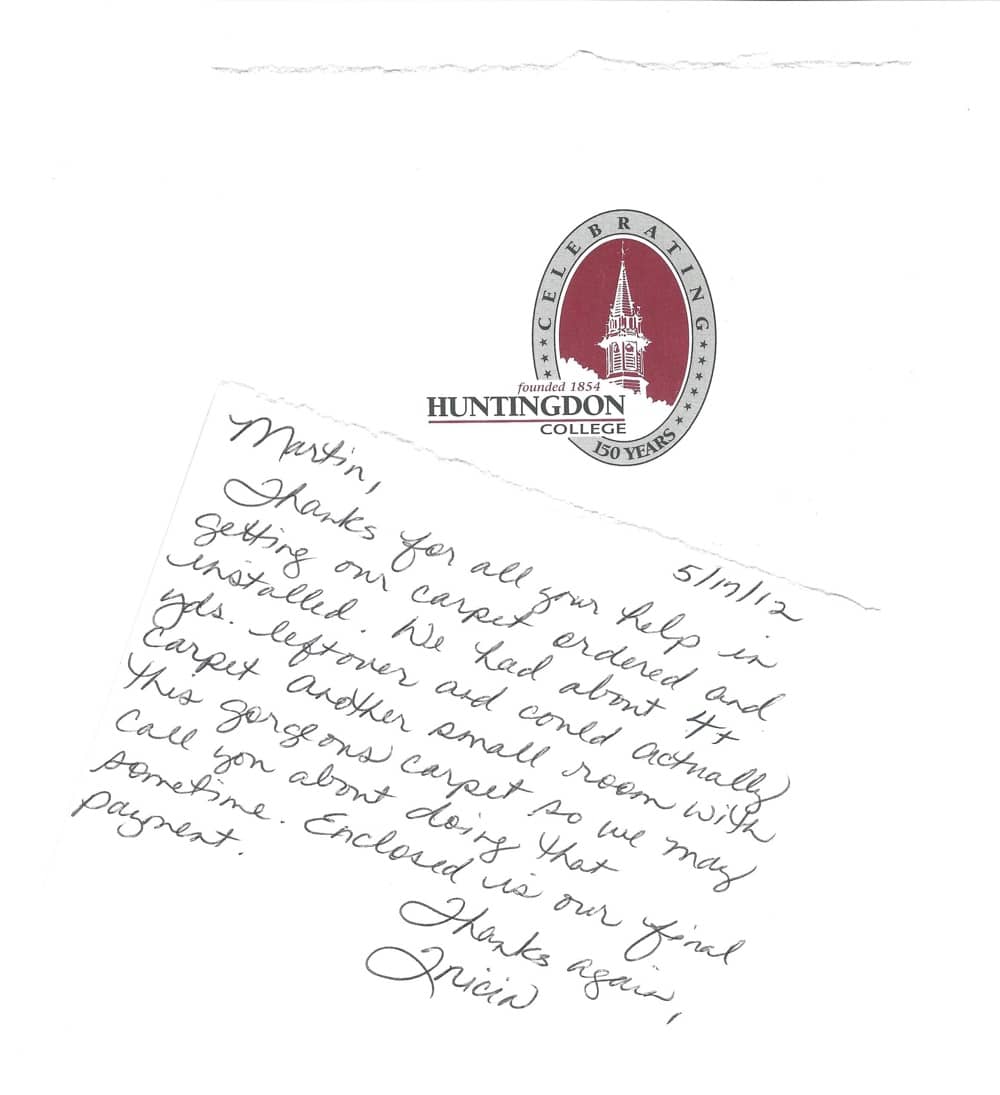 CELEBRATING
founded 1854
HUNTINGDON
COLLEGE
150 YEARS
5/17/12
Martin,
Thanks for all your help in
getting our carpet ordered and
installed. We had about 4+
yds. leftover and could actually
carpet another small room with
this gorgeous carpet so we may
call you about doing that
sometime. Enclosed is our final
payment.
Thanks again,
Tricia